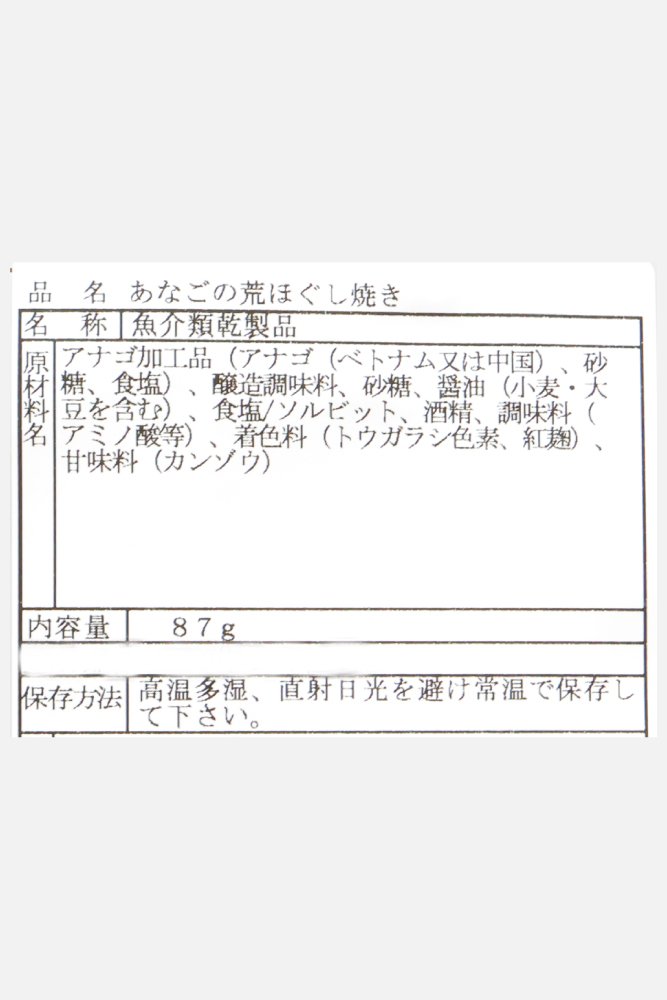 品 名 あなごの荒ほぐし焼き
名 称 魚介類乾製品
原材料名
アナゴ加工品（アナゴ（ベトナム又は中国）、砂
糖、食塩）、醸造調味料、砂糖、醤油（小麦・大
豆を含む）、食塩/ソルビット、酒精、調味料（
アミノ酸等）、着色料（トウガラシ色素、紅麹）、
甘味料（カンゾウ）
内容量 87g
保存方法
高温多湿、直射日光を避け常温で保存し
て下さい。